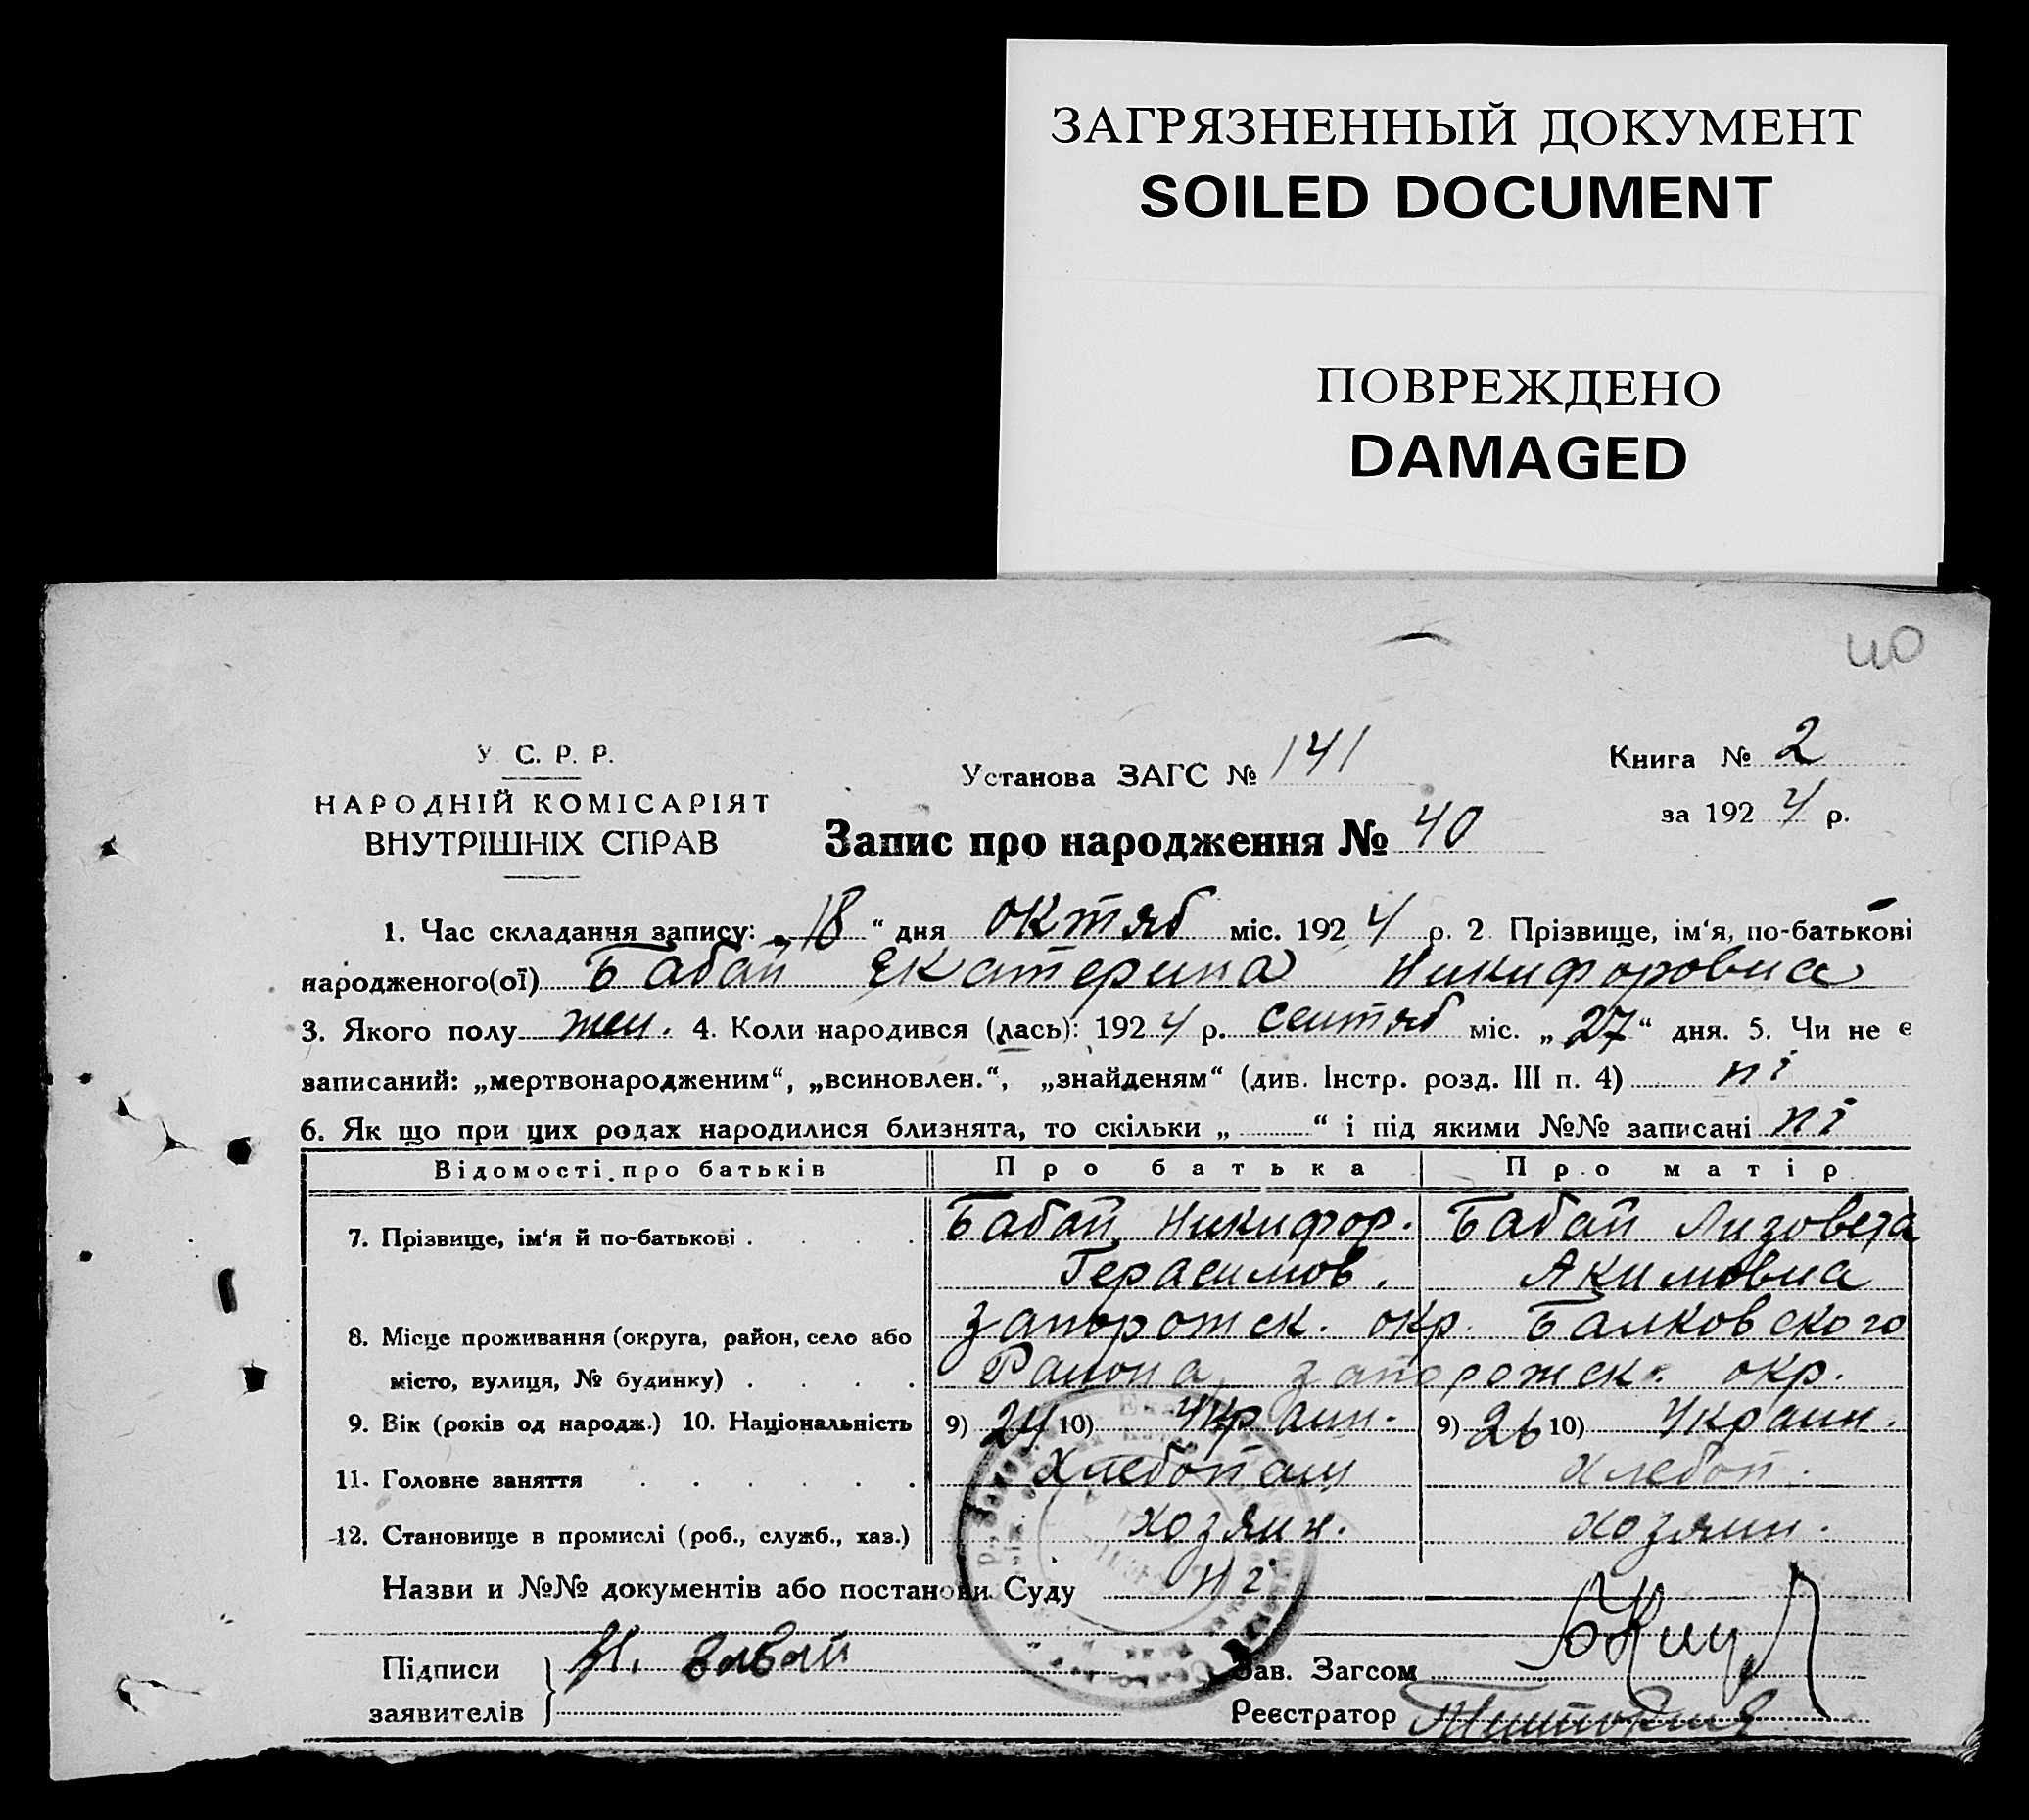 ЗАГРЯЗНЕННЫЙ ДОКУМЕНТ
SOILED DOCUMENT
ПОВРЕЖДЕНО
DAMAGED
40
У. С. Р. Р.
НАРОДНІЙ КОМІСАРІЯТ
ВНУТРІШНІХ СПРАВ
Установа ЗАГС № 141
Книга № 2
за 1924 р.
Запис про народження № 40
1. Час складання запису: „18“ дня октяб міс. 1924 р. 2. Прізвище, ім‘я, по-батькові
народженого(ої) Бабай Екатерина Никифоровна
3. Якого полу жен. 4. Коли народився (лась): 1924 р. сентяб міс. „27“ дня. 5. Чи не є
записаний: „мертвонародженим“, „всиновлен.“, „знайденям“ (див. Інстр. розд. III п. 4) ні
6. Як що при цих родах народилися близнята, то скільки „ “ і під якими №№ записані ні
Відомості про батьків Про батька Про матір
7. Прізвище, ім‘я й по-батькові . . . . Бабай Никифор. Бабай Лизовета
Герасимов. Акимовна
8. Місце проживання (округа, район, село або Запорожск. окр. Балковского
місто, вулиця, № будинку) . . . . Района, Запорожск. окр.
9. Вік (років од народж.) 10. Національність 9) 24 10) Украин. 9) 26 10) Украин.
11. Головне заняття . . . . . . Хлебопаш Хлебоп.
12. Становище в промислі (роб., служб., хаз.) хозяин. хозяин.
Назви и №№ документів або постанови Суду ні
Підписи
заявителів
Н. Бабай
Зав. Загсом
Реєстратор